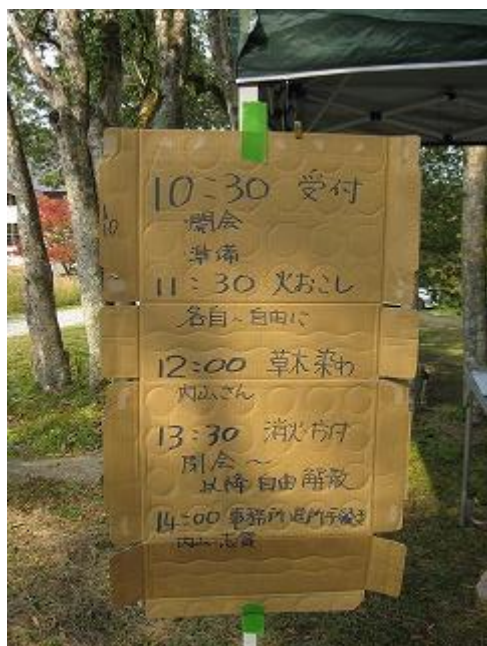 10:30 受付
開会
準備
11:30 火おこし
各自〜自由に
12:00 草木染め
内山さん
13:30 消火・片付
閉会〜
以降自由解散
14:00 事務所退所手続き
内山・志賀
10